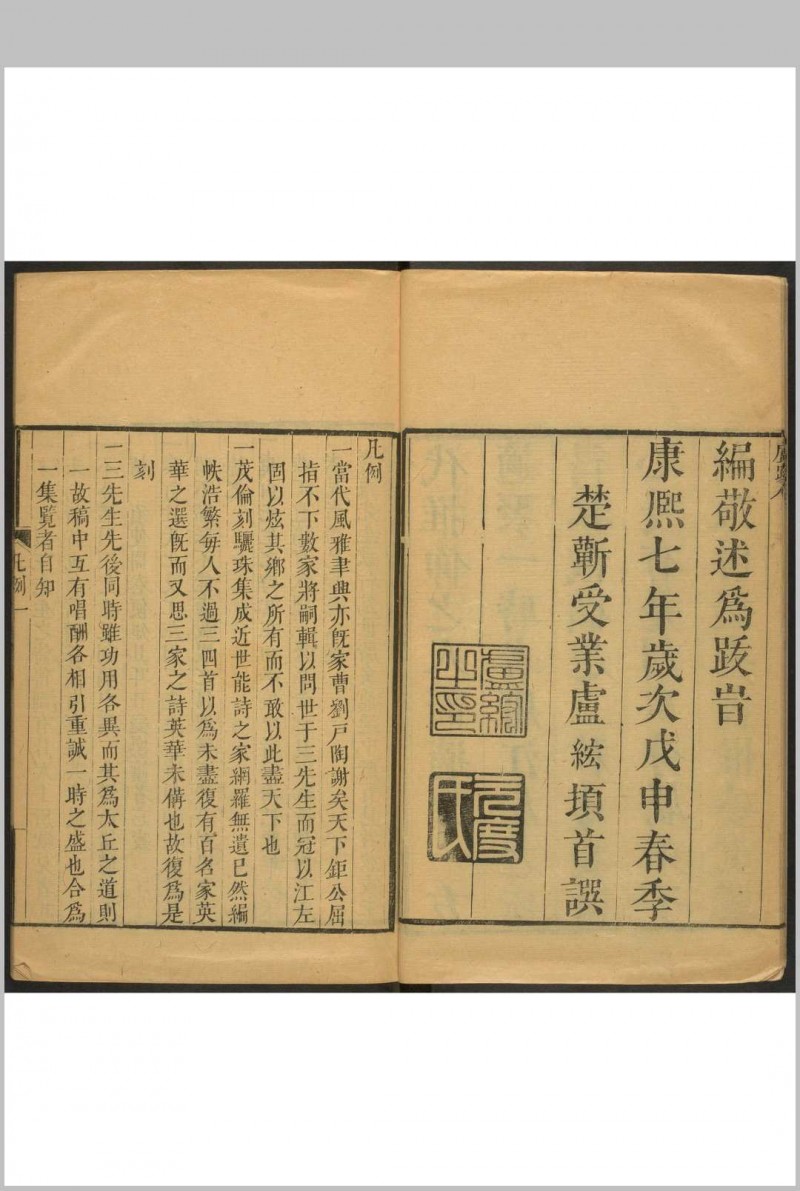 編敬述為跋旹
康熙七年歲次戊申春季
楚蘄受業盧綋頊首譔
盧綋之印
元度氏
凡例
一當代風雅聿興亦既家曹劉戸陶謝矣天下鉅公屈
指不下數家將嗣輯以問世于三先生而冠以江左
固以炫其鄉之所有而不敢以此盡天下也
一茂倫刻驪珠集成近世能詩之家網羅無遺已然編
帙浩繁每人不過三四首以為未盡復有百名家英
華之選既而又思三家之詩英華未備也故復為是
刻
一三先生先後同時雖功用各異而其為太丘之道則
一故稿中互有唱酬各相引重誠一時之盛也合為
一集覽者自知
凡例 一